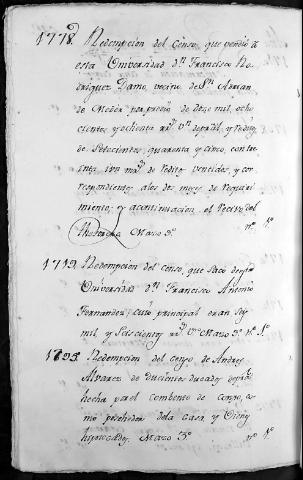 1778. Redempcion del Censo, que pendió â
esta Universidad Dn. Francisco Ro=
driguez Damo, vecino de Sn. Adrian
de por precio de doze mil, ocho
cientos, y ochenta rs. vn. de pral. y redito
de Setecientos, quarenta y cinco, con tre-
inta, mrs. de reditos vencidos, y cor-
respondientes a los dos meses de requiri-
miento; y acontinuacion el recivo del
Mazo 3º. nº. 1º.
1719. Redempcion del censo, que Sacó
Universidad Dn. Francisco Antonio
Fernandez, cuio principal eran Seis
mil, y Seiscientos rs. vn. Mazo 3º. nº. 1º.
1805. Redempcion del Censo de Andres
Alvarez de Ducientos ducados de pral.
hecha por el combento de Corzo, co-
mo posehedor de la casa y Vienes
hypotecados. Mazo 3º nº 1º